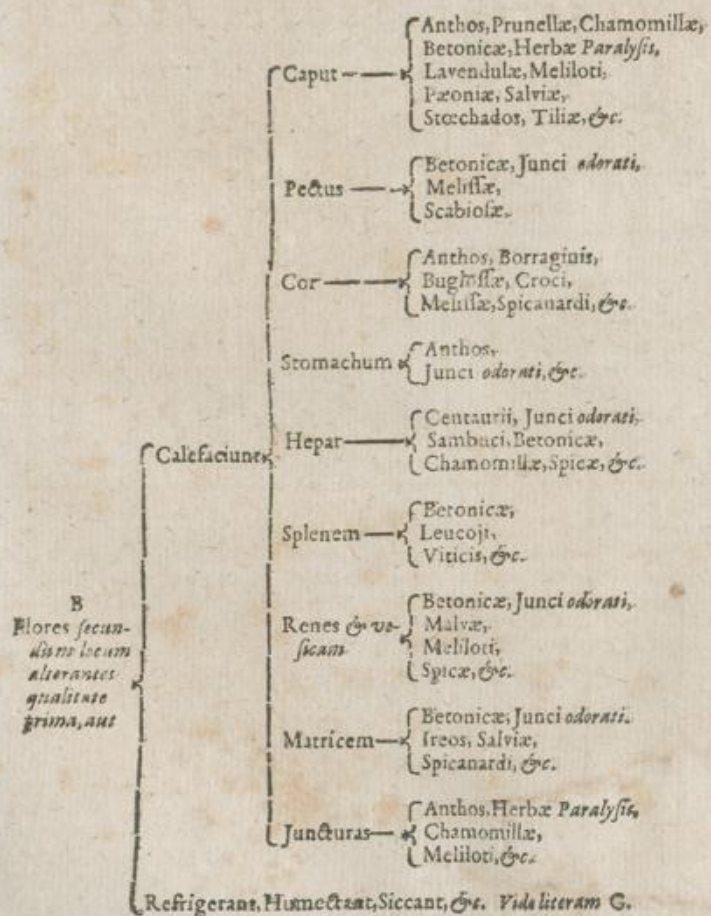 B
Flores secun-
dum locum
alterantes
qualitate
prima, aut
Calefaciunt
Caput
Anthos, Prunellæ, Chamomillæ,
Betonicæ, Herbæ Paralysis,
Lavendulæ, Meliloti,
Pæoniæ, Salviæ,
Stœchados, Tiliæ, &c.
Pectus
Betonicæ, Junci odorati,
Melissæ,
Scabiosæ.
Cor
Anthos, Borraginis,
Buglossæ, Croci,
Melissæ, Spicanardi, &c.
Stomachum
Anthos,
Junci odorati, &c.
Hepar
Centaurii, Junci odorati,
Sambuci, Betonicæ,
Chamomillæ, Spicæ, &c.
Splenem
Betonicæ,
Leucoji,
Viticis, &c.
Renes & ve-
sicam
Betonicæ, Junci odorati,
Malvæ,
Meliloti,
Spicæ, &c.
Matricem
Betonicæ, Junci odorati.
Ireos, Salviæ,
Spicanardi, &c.
Juncturas
Anthos, Herbæ Paralysis,
Chamomillæ,
Meliloti, &c.
Refrigerant, Humectant, Siccant, &c. Vide literam G.